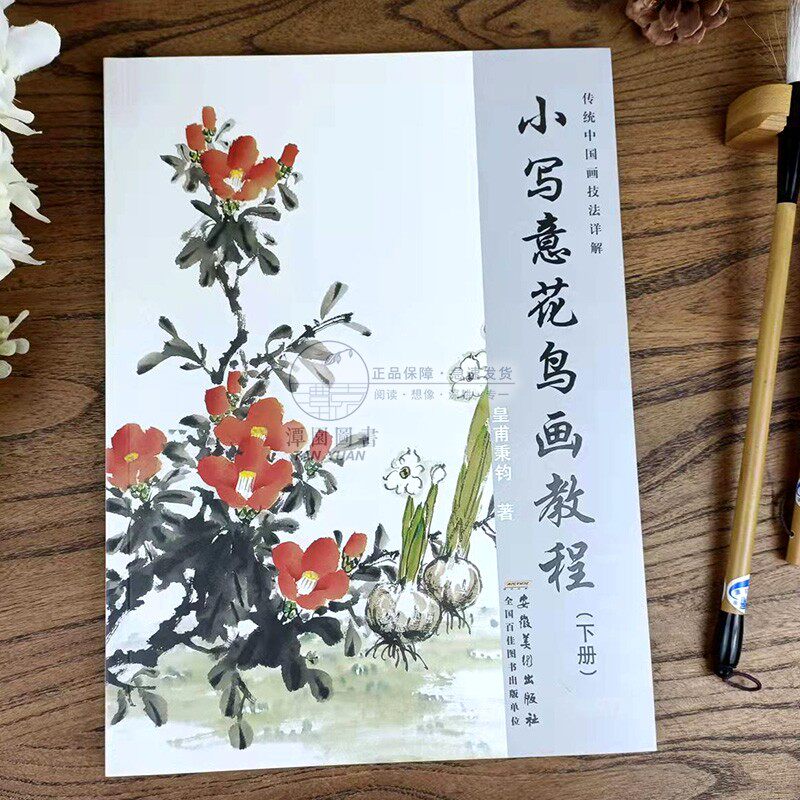 传统中国画技法详解
小写意花鸟画教程
(下册)
皇甫秉钧 著
安徽美术出版社
全国百佳图书出版单位
正品保障·急速发货
阅读·想像·
潭圆圖書
TAN YUAN